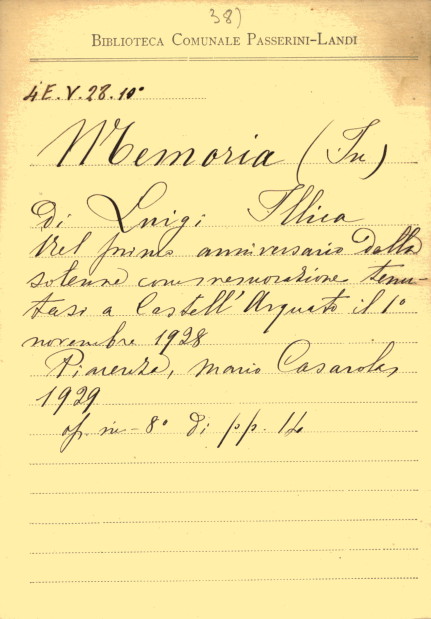 38)
BIBLIOTECA COMUNALE PASSERINI-LANDI
4E. V. 28. 10°
Memoria (In)
di Luigi Illica
Nel primo anniversario dalla
solenne commemorazione tenu-
tasi a Castell'Arquato il 1°
novembre 1928
Piacenza, Mario Casarola,
1929
op. in-8° di pp. 14